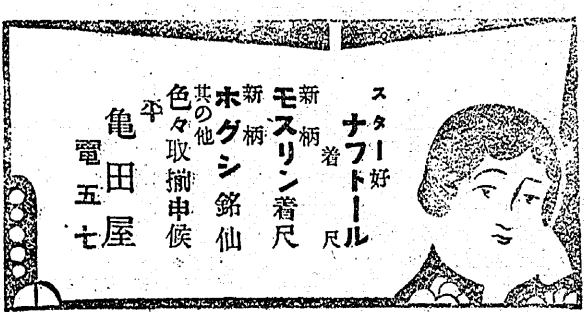 スター好
ナフトール着尺
新柄
モスリン着尺
新柄
ホグシ銘仙
其の他
色々取揃申候
亀田屋
電五七